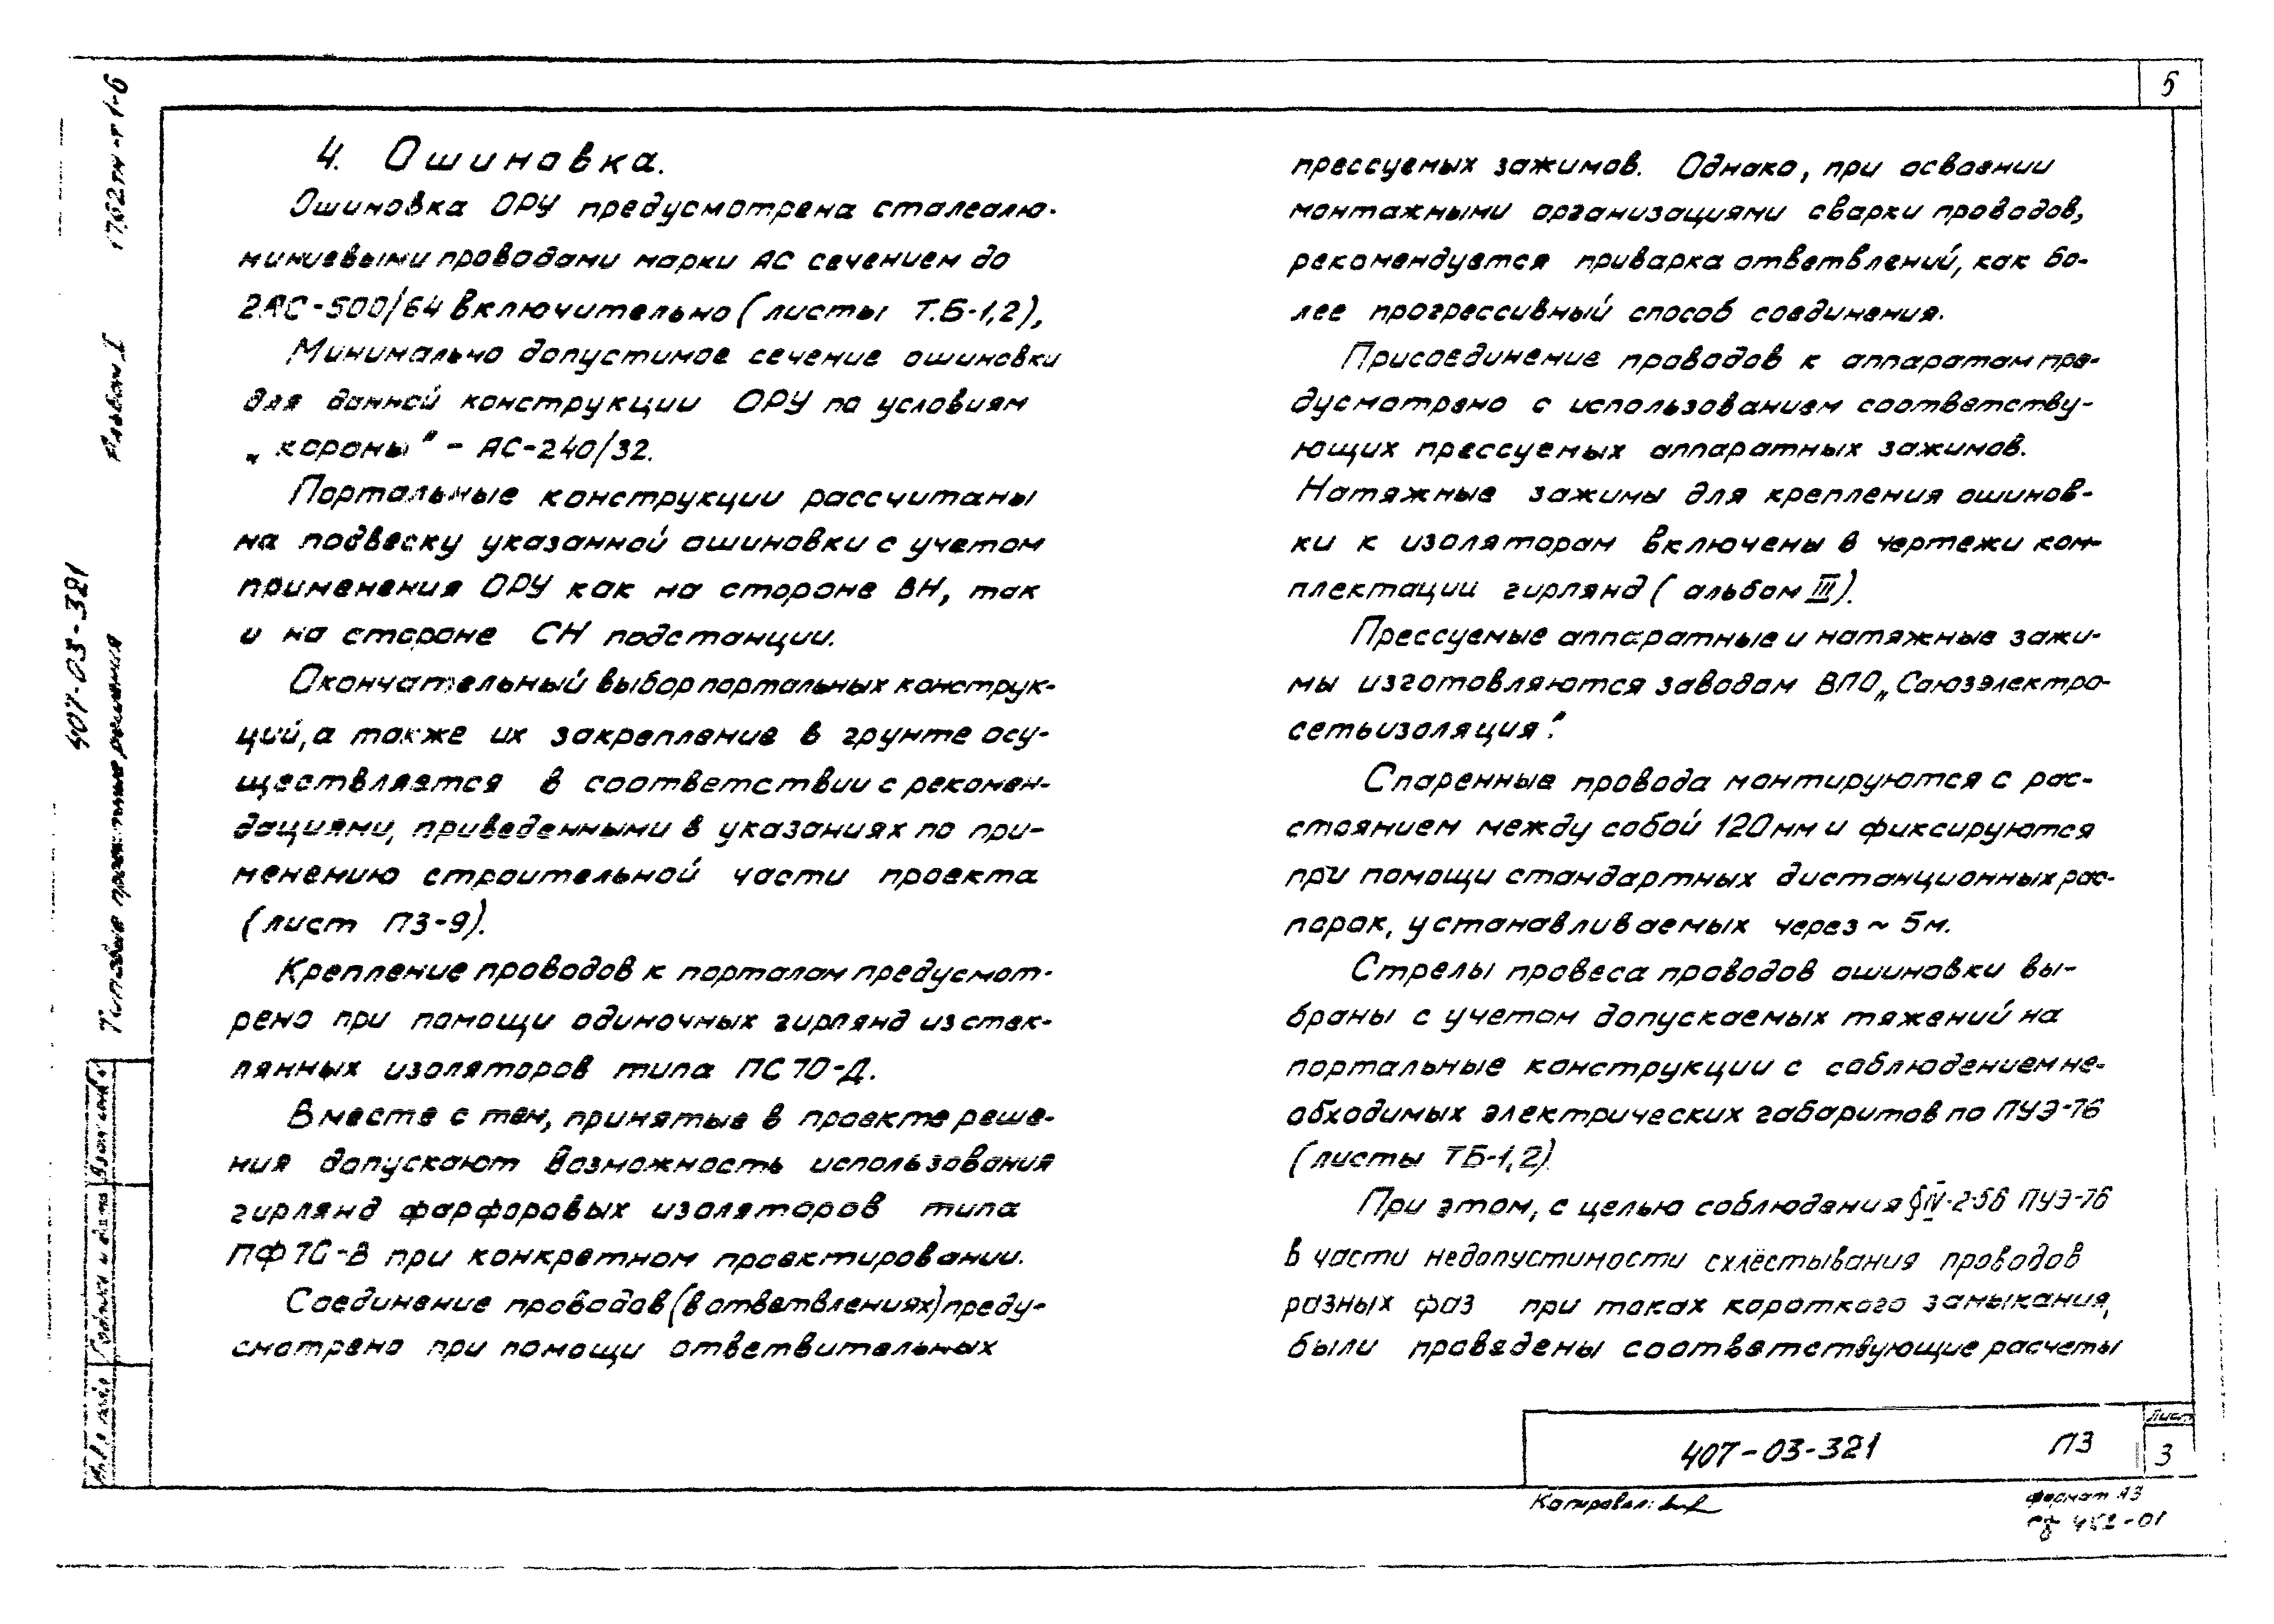 5
4. Ошиновка.
Ошиновка ОРУ предусмотрена сталеалю-
миниевыми проводами марки АС сечением до
2АС-500/64 включительно (листы Т.Б-1,2),
Минимально допустимое сечение ошиновки
для данной конструкции ОРУ по условиям
„ короны" - АС-240/32.
Портальные конструкции рассчитаны
на подвеску указанной ошиновки с учетом
применения ОРУ как на стороне ВН, так
и на стороне СН подстанции.
Окончательный выбор портальных конструк-
ций, а также их закрепление в грунте осу-
ществляется в соответствии с рекомен-
дациями, приведенными в указаниях по при-
менению строительной части проекта
(лист ПЗ-9).
Крепление проводов к порталам предусмот-
рено при помощи одиночных гирлянд из стек-
лянных изоляторов типа ПС 70-Д.
Вместе с тем, принятые в проекте реше-
ния допускают возможность использования
гирлянд фарфоровых изоляторов типа
ПФ 70-В при конкретном проектировании.
Соединение проводов (в ответвлениях) преду-
смотрено при помощи ответвительных
прессуемых зажимов. Однако, при освоении
монтажными организациями сварки проводов,
рекомендуется приварка ответвлений, как бо-
лее прогрессивный способ соединения.
Присоединение проводов к аппаратам пре-
дусмотрено с использованием соответству-
ющих прессуемых аппаратных зажимов.
Натяжные зажимы для крепления ошинов-
ки к изоляторам включены в чертежи ком-
плектации гирлянд ( альбом III).
Прессуемые аппаратные и натяжные зажи-
мы изготовляются заводом ВПО „Союзэлектро-
сетьизоляция".
Спаренные провода монтируются с рас-
стоянием между собой 120мм и фиксируются
при помощи стандартных дистанционных рас-
порок, устанавливаемых через ~ 5м.
Стрелы провеса проводов ошиновки вы-
браны с учетом допускаемых тяжений на
портальные конструкции с соблюдением не-
обходимых электрических габаритов по ПУЭ-76
(листы ТБ-1,2)
При этом, с целью соблюдения § IV-2-56 ПУЭ-76
в части недопустимости схлёстывания проводов
разных фаз при токах короткого замыкания,
были проведены соответствующие расчеты
407-03-321 ПЗ
Лист
3
Копировал:
формат А3
17.62тм-т1-6
Альбом I
407-03-321
Типовые проектные решения
Взам инв.
Подпись и дата
Инв. подл